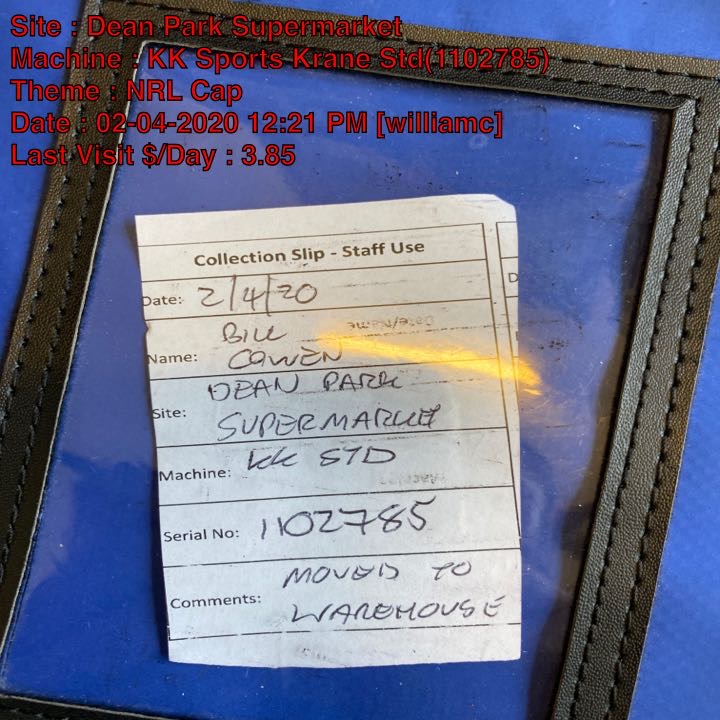 Site : Dean Park Supermarket
Machine : KK Sports Krane Std(1102785)
Theme : NRL Cap
Date : 02-04-2020 12:21 PM [williamc]
Last Visit $/Day : 3.85
Collection Slip - Staff Use
Date: 2/4/20
D
Date/Name
Name: BILL
COWEN
Site: DEAN PARK
SUPERMARKET
Machine: KK STD
Serial No: 1102785
Comments: MOVED TO
WAREHOUSE